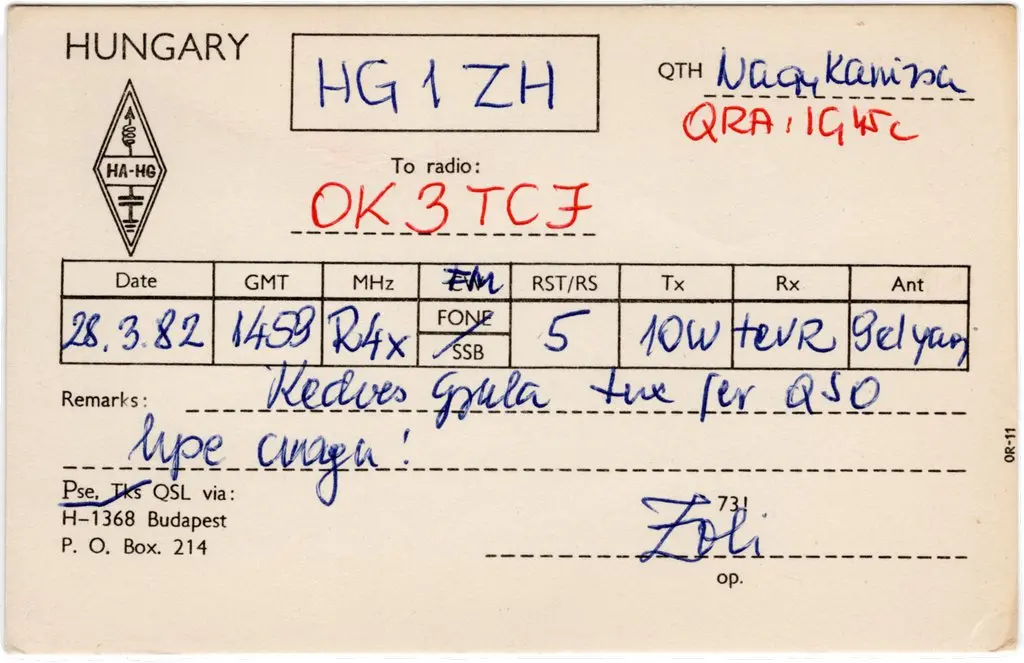 HUNGARY
HG1ZH
QTH Nagykanizsa
QRA: IG45c
HA-HG
To radio:
OK3TCJ
Date GMT MHz FM RST/RS Tx Rx Ant
FONE
28.3.82 1459 R4x 5 10W
SSB
Remarks: Kedves Gyula tnx fer QSO
hpe cuagn!
Pse, Tks QSL via:
H-1368 Budapest
P. O. Box. 214
73!
Zoli
op.
OR-11